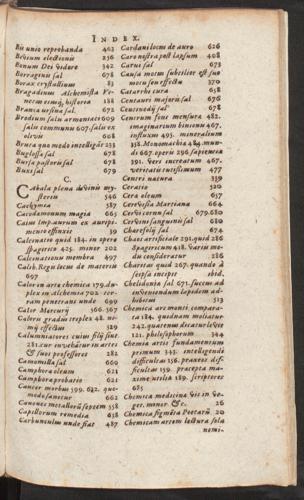 INDEX.
Bis unio reprobanda 403
Bonum Dei videre 342
Borraginis sal 678
Borax crystallium 83
Bragadinus Alchemista Venetam historia 188
Branca ursina sal. 672
Brodium salis armonas 609
salis communis 607. salis ex
Bruta quo modo intelligēda 253
Buglossa sal 678
Bursa pastoris sal 678
Buxi sal 679
C.
Cabala plena divinis mysteriis 546
Cachymia 587
Cacodæmonum magia 665
Caius Imp. aurum ex auripigmento effinxit 39
Calcinatio quid 184. in opera
spagerico 425. minor 202
Calcinationum membra 497
Calch. Regis locus de materia
697
Calor in arte chemica 179. duplex in alchimia 702.
penetrans unde 699
Calor Mercurij 366.367
mij effectus 529
Calumniatores cuius filij sint
281. cur invehātur in artes
& suos professores 282
Camomilla sal 660
Camphora oleum 621
Camphora probatio 621
Cancer morbus 599. 642. quomodo sanetur 662
Canones metallorū septem 558
Capillorum remedia 638
Carbunculum unde fiat 487
Cardani locus de auro 626
Caro nostra post lapsum 408
Carui sal 673
Causa motus subtilior est suo
motus seu effectu 370
Catarrhi cura 658
Centauri majoris sal 676
Centrum fons mensura 482.
imaginarium hominis 407.
influxus 493. mineralium
358. Monomachia 484. mundi
667. operis 296. sapientia
391. veri increatum 467.
veritatis rutissimum 477
Centri natura 339
Ceratio 520
Cera oleum 637
Cervisia Martiana 664
679.680
Cervini sanguinis sal 680
Charefolij sal 674
Chaos artificiale 291. quid 286
Spagericum 418. varia modo
consideratur 286
Charitas quid 267. quando à
seipsa incipit ibid.
Chelidonia sal 671. succus ad
inveniendum lapidem adhibitus 513
Chemica ars monti comparata 184.
242. quatenus discatur levis
121. philosopharum 344
Chemia artis fundamentum
primum 343. intelligendi
difficultas 156. praxeos difficultas 159. præcepta maxime utilia 189. scriptores
685
Chemica medicina vis in
& c. 26
Chemica figmēta Poetarū 20
Chemicam artem lectura sola
nemi-